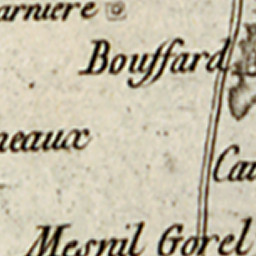 arniere
Bouffard
neaux
Cau
Mesnil Gorel